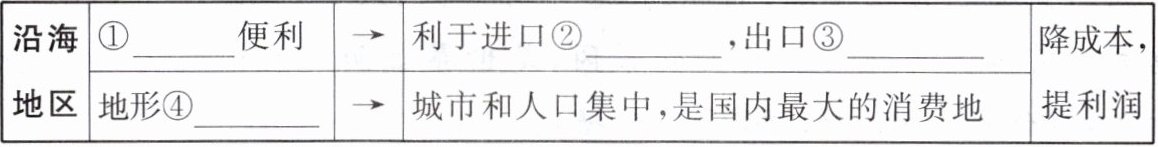 沿海地区 ①______便利 → 利于进口②________,出口③________ 降成本,提利润
地形④_______ → 城市和人口集中,是国内最大的消费地